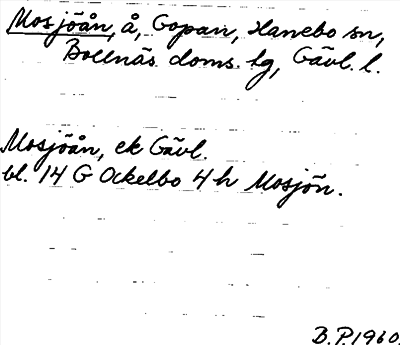 Mosjöån, å, Gopan, Hanebo sn,
Bollnäs doms. tg, Gävl. l.
Mosjöån, ek Gävl.
bl. 14 G Ockelbo 4 h Mosjön.
B.P. 1960.